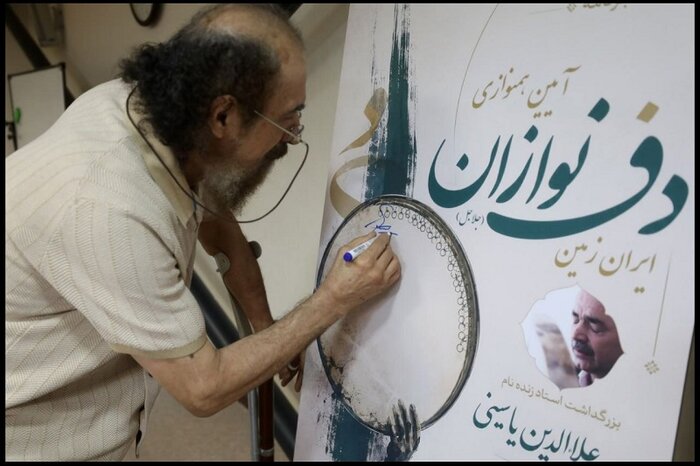 آیین همنوازی
دف نوازان
(جلاجل)
ایران زمین
بزرگداشت استاد زنده نام
علاءالدین یاسینی